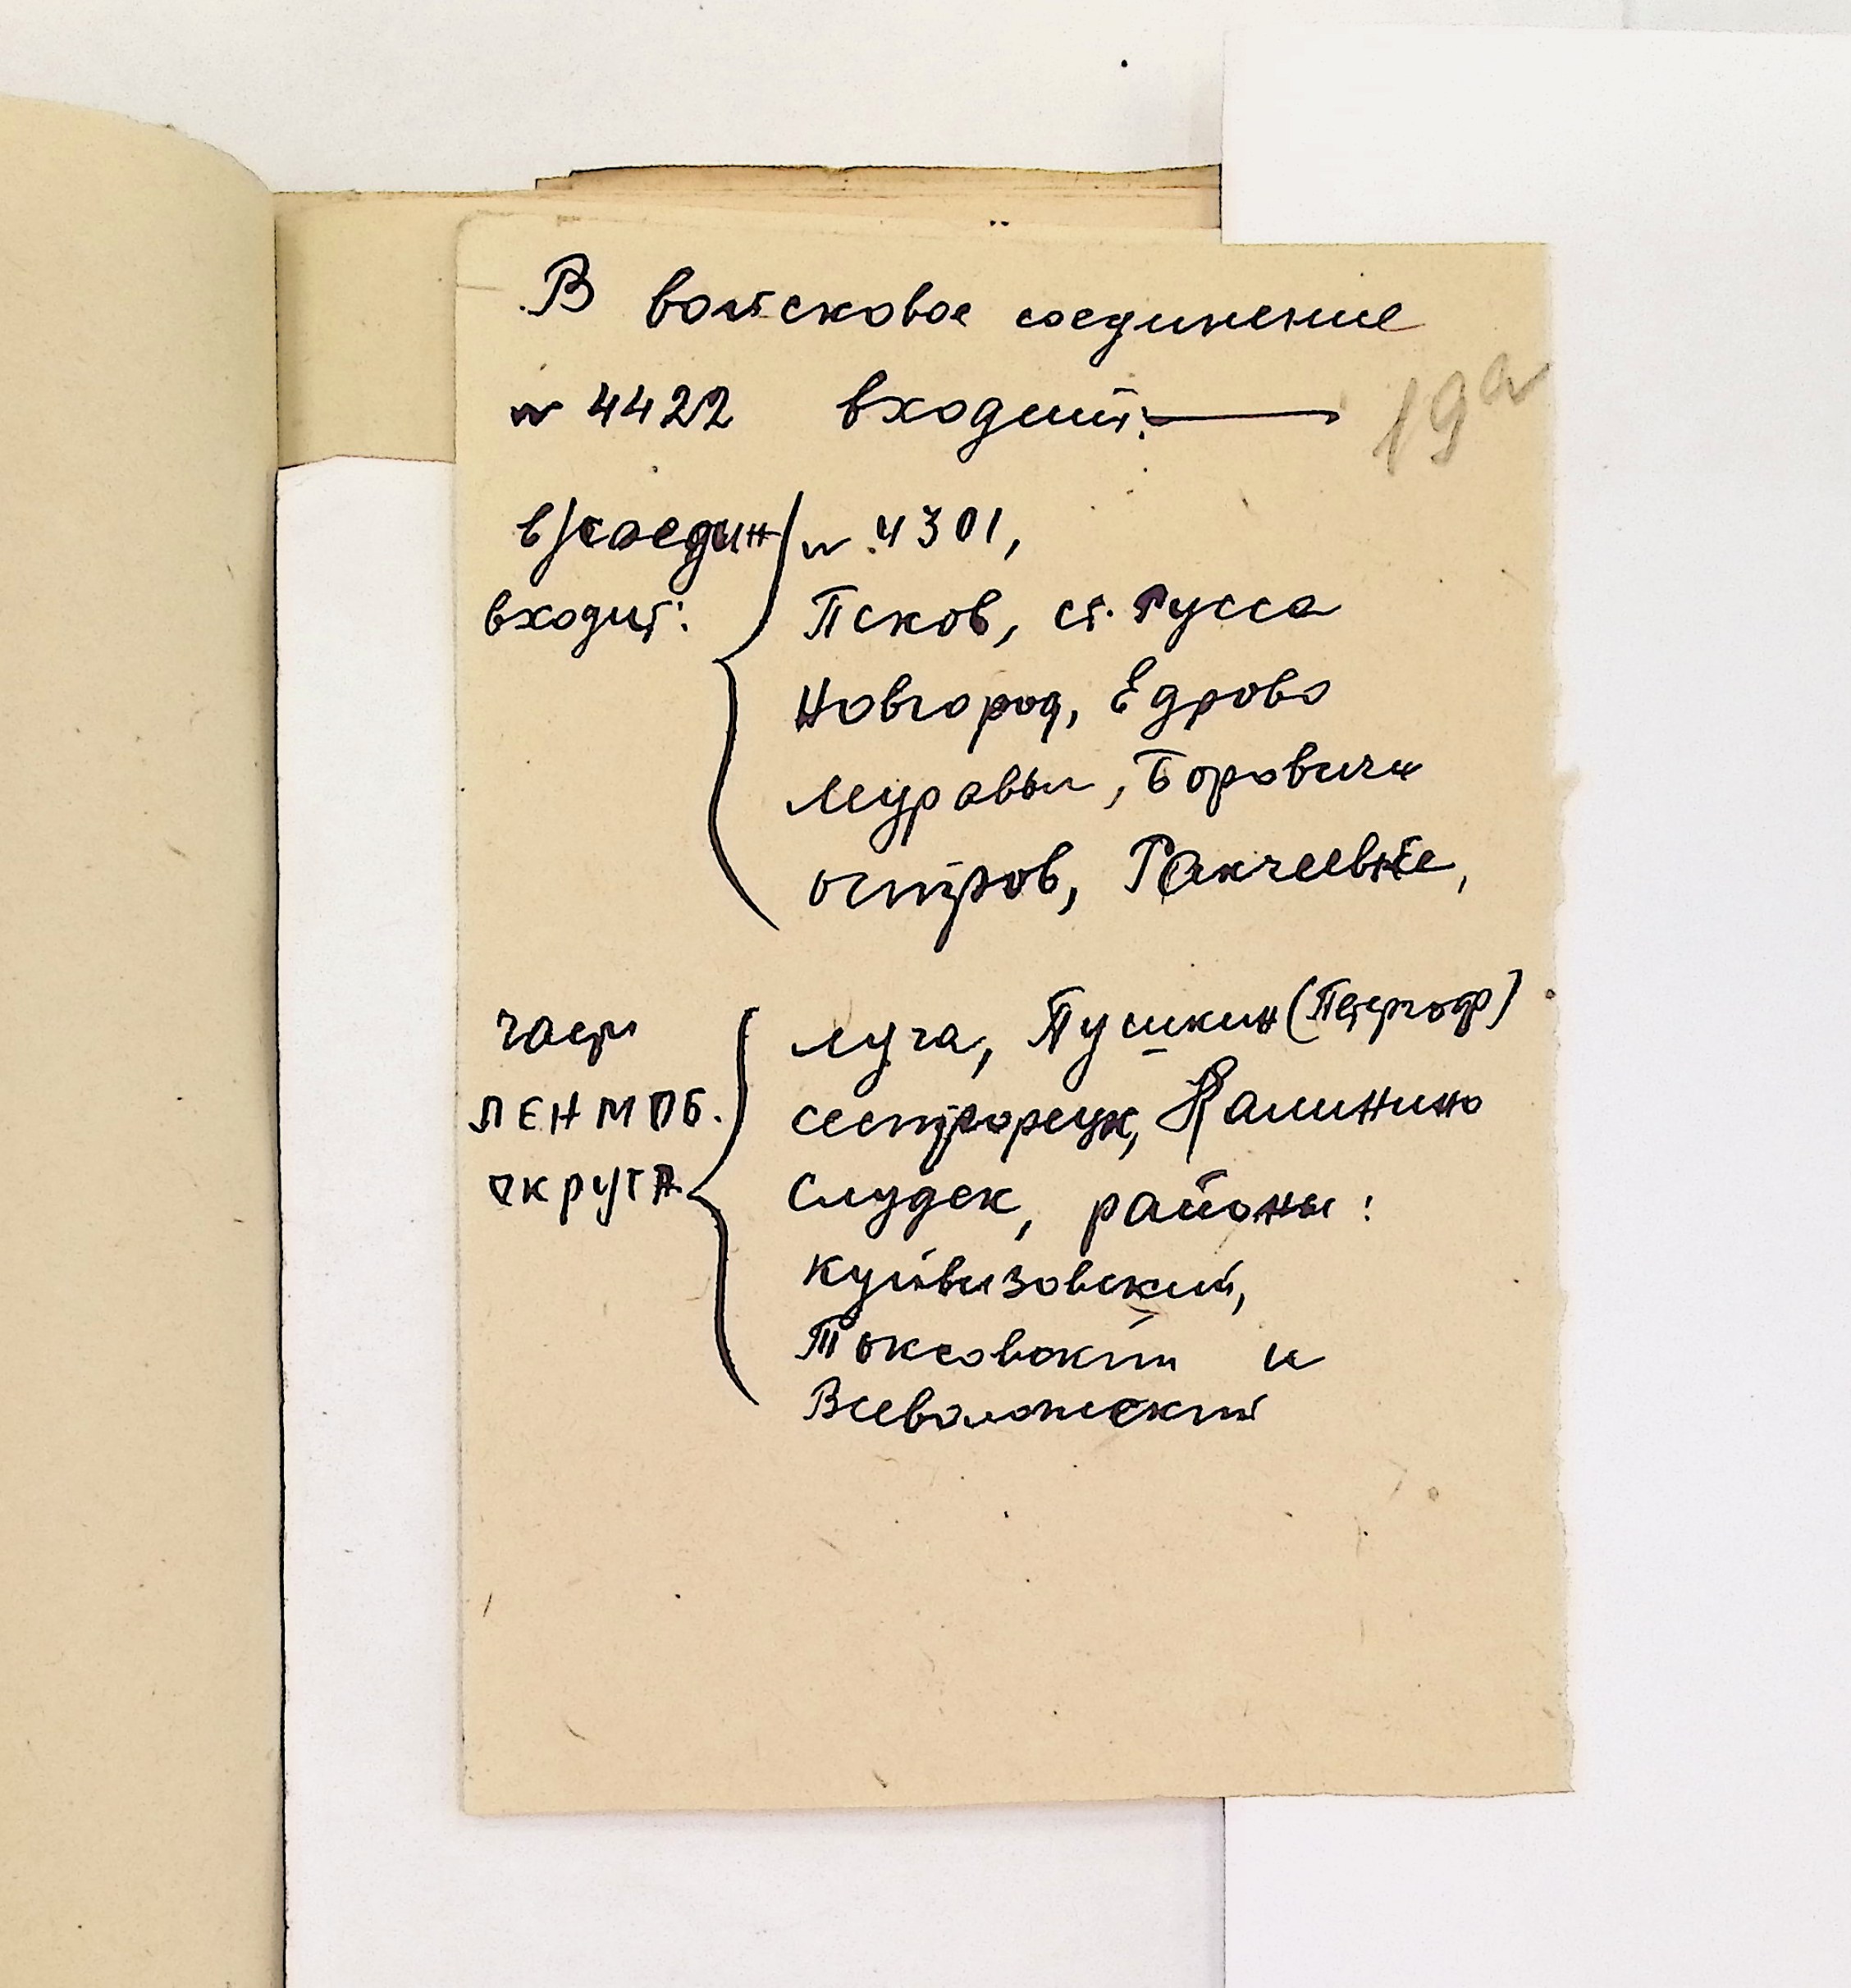 В войсковое соединение
№ 4422 входит:
19а
в/соедин № 4301,
входит:
Псков, ст. Русса
Новгород, Едрово
Муравьи, Боровичи
остров, Ракчеевке,
част
луга, Пушкин (Петргоф)
ЛЕНМОБ.
сестрорецк, Калинино
ОКРУГА
Слудск, районы:
Куйвизовский,
Токсовский и
Всеволожский